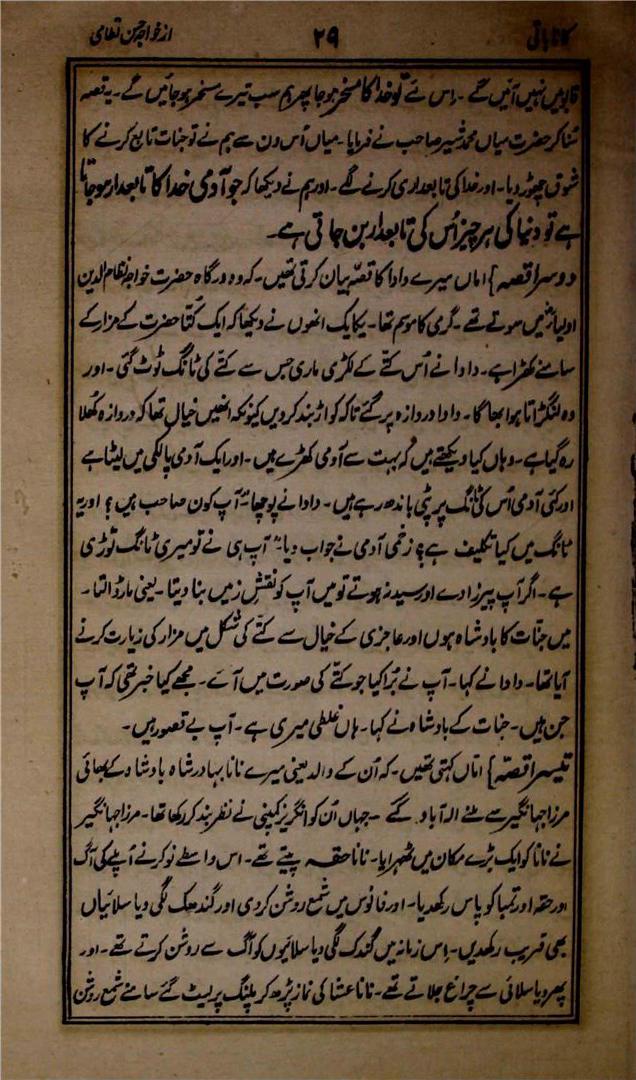 کانا باتی ۲۹ از خواجہ حسن نظامی
قابو میں نہیں آئیں گے۔ اس لئے تو خدا کا مسخر ہو جا پھر ہم سب تیرے مسخر ہو جائیں گے۔ یہ قصہ
سُنا کر حضرت میاں محمد شیر صاحب نے فرمایا۔ میاں اُس دن سے ہم نے تو جنات تابع کرنے کا
شوق چھوڑ دیا۔ اور خدا کی تابعداری کرنے لگے۔ اور ہم نے دیکھا کہ جو آدمی خدا کا تابعدار ہو جاتا
ہے تو دنیا کی ہر چیز اُس کی تابعدار بن جاتی ہے۔
دوسرا قصہ} اماں میرے دادا کا قصہ بیان کرتی تھیں۔ کہ وہ درگاہ حضرت خواجہ نظام الدین
اولیاؒ میں سوتے تھے۔ گرمی کا موسم تھا۔ یکایک انھوں نے دیکھا کہ ایک کُتّا حضرت کے مزار کے
سامنے کھڑا ہے۔ دادا نے اُس کُتّے کے لکڑی ماری جس سے کتے کی ٹانگ ٹوٹ گئی۔ اور
وہ لنگڑاتا ہوا بھاگا۔ دادا دروازہ پر گئے تاکہ کواڑ بند کردیں کیونکہ انھیں خیال تھا کہ دروازہ کھلا
رہ گیا ہے۔ وہاں کیا دیکھتے ہیں کہ بہت سے آدمی کھڑے ہیں۔ اور ایک آدمی پالکی میں لیٹا ہے
اور کئی آدمی اُس کی ٹانگ پر پٹی باندھ رہے ہیں۔ دادا نے پوچھا "آپ کون صاحب ہیں؟ اور یہ
ٹانگ میں کیا تکلیف ہے؟ زخمی آدمی نے جواب دیا" آپ ہی نے تو میری ٹانگ توڑی
ہے۔ اگر آپ پیرزادے اور سید نہ ہوتے تو میں آپ کو نقشِ زمیں بنا دیتا۔ یعنی مار ڈالتا۔
میں جنّات کا بادشاہ ہوں اور عاجزی کے خیال سے کتے کی شکل میں مزار کی زیارت کرنے
آیا تھا۔ دادا نے کہا۔ آپ نے بُرا کیا جو کتے کی صورت میں آئے۔ مجھے کیا خبر تھی کہ آپ
جن ہیں۔ جنات کے بادشاہ نے کہا۔ ہاں غلطی میری ہے۔ آپ بے قصور ہیں۔
تیسرا قصّہ} اماں کہتی تھیں۔ کہ اُن کے والد یعنی میرے نانا بہادر شاہ بادشاہ کے بھائی
مرزا جہانگیر سے ملنے الہ آباد گئے۔ جہاں اُن کو انگریز کمپنی نے نظر بند کر رکھا تھا۔ مرزا جہانگیر
نے نانا کو ایک بڑے مکان میں ٹھہرایا۔ نانا حقہ پیتے تھے۔ اس واسطے نوکر نے اُپلے کی آگ
اور حقہ اور تمباکو پاس رکھدیا۔ اور فانوس میں شمع روشن کر دی اور گندھک لگی دیا سلائیاں
بھی قریب رکھدیں۔ اس زمانہ میں گندک لگی دیا سلائیوں کو آگ سے روشن کرتے تھے۔ اور
پھر دیا سلائی سے چراغ جلاتے تھے۔ نانا عشا کی نماز پڑھ کر پلنگ پر لیٹ گئے سامنے شمع روشن